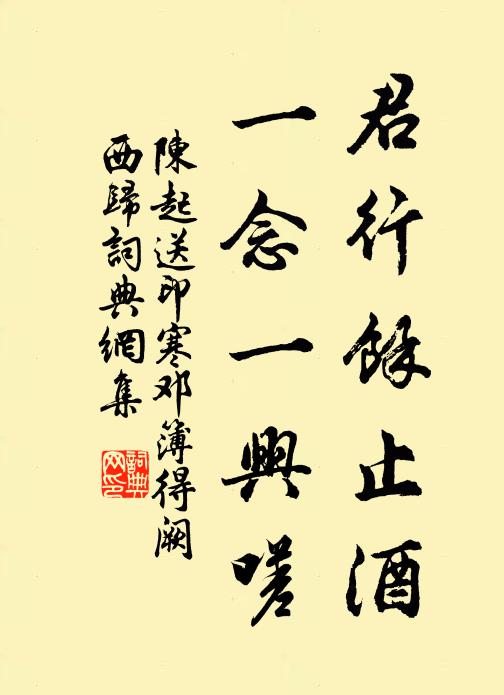 君行餘止酒
一念一興嗟
陳起送印寒邓簿得阙
西歸詞典網集
詞典网印